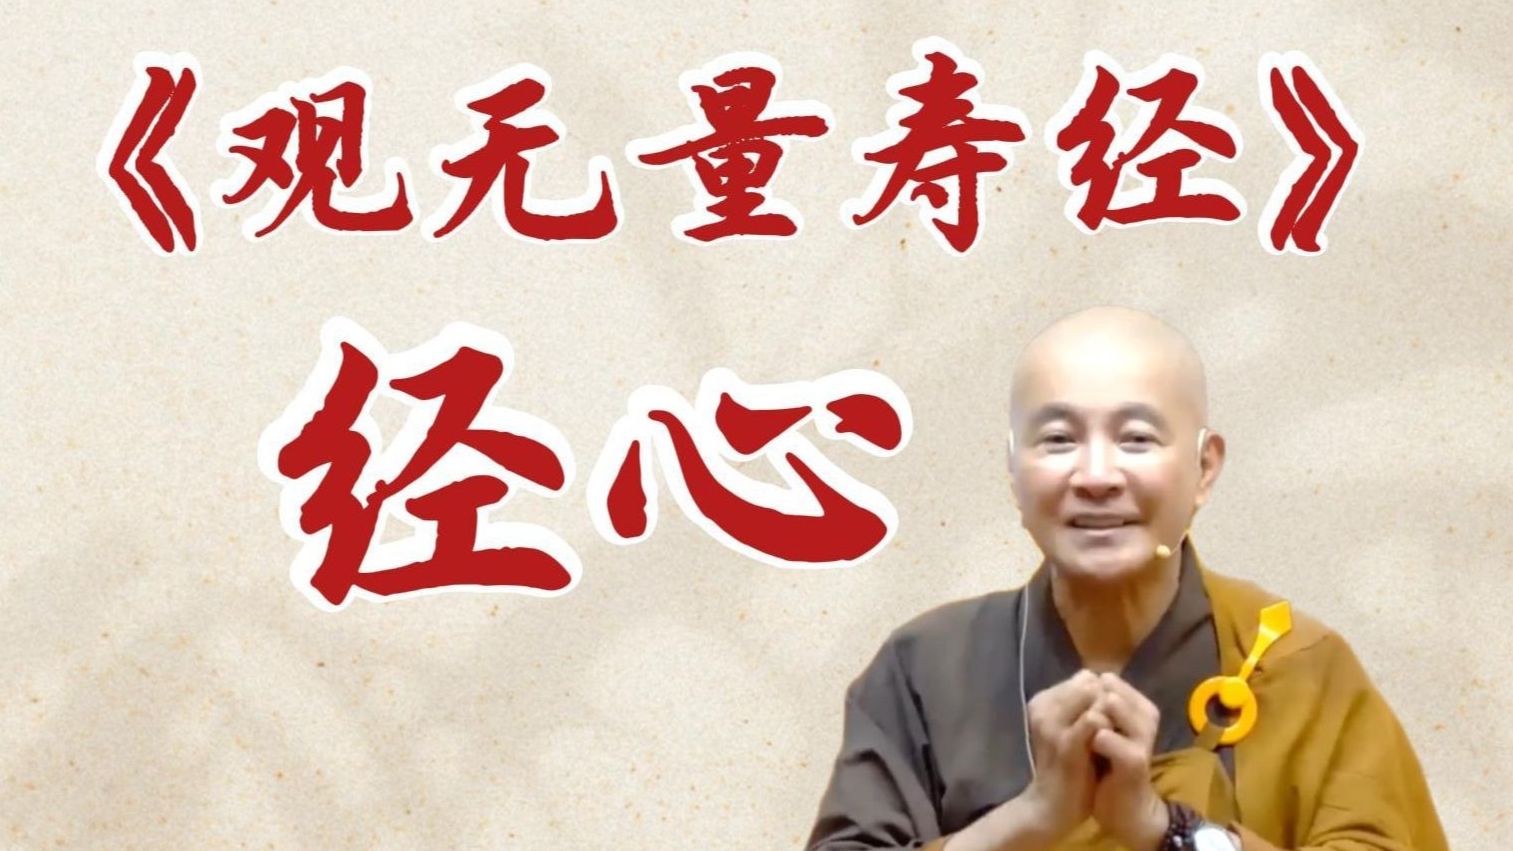 《观无量寿经》
经心